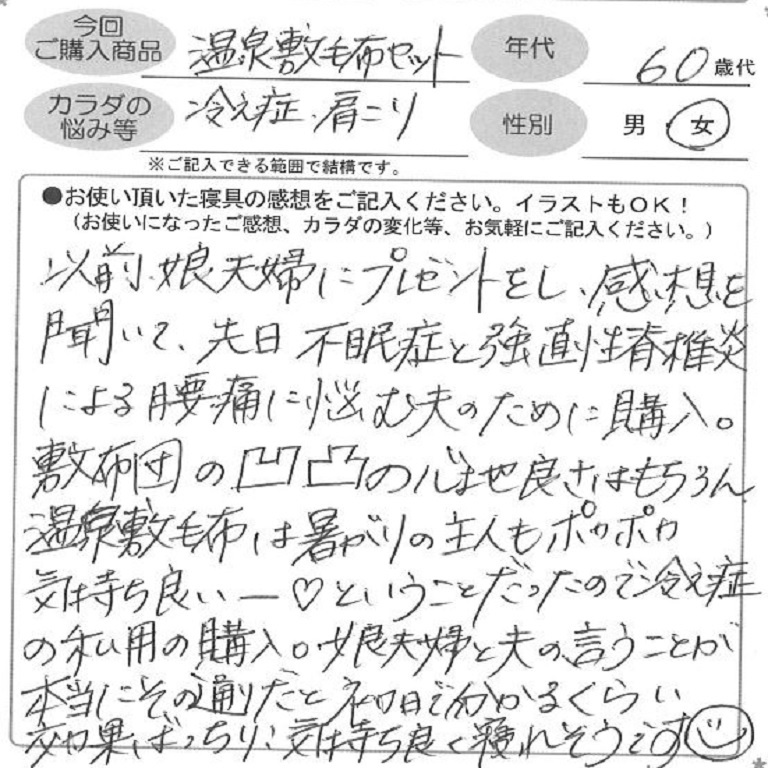 今回
ご購入商品
温泉敷毛布セット
年代
60歳代
カラダの
悩み等
冷え症、肩こり
性別
男・女
※ご記入できる範囲で結構です。
●お使い頂いた寝具の感想をご記入ください。イラストもOK!
(お使いになったご感想、カラダの変化等、お気軽にご記入ください。)
以前、娘夫婦にプレゼントをし、感想を
聞いて、先日不眠症と強直性脊椎炎
による腰痛に悩む夫のために購入。
敷布団の凹凸の心地良さはもちろん
温泉敷毛布は暑がりの主人もポカポカ
気持ち良いー♡ということだったので冷え症
の私用の購入。娘夫婦と夫の言うことが
本当にその通りだと初日で分かるくらい
効果ばっちり!気持ち良く寝れそうです